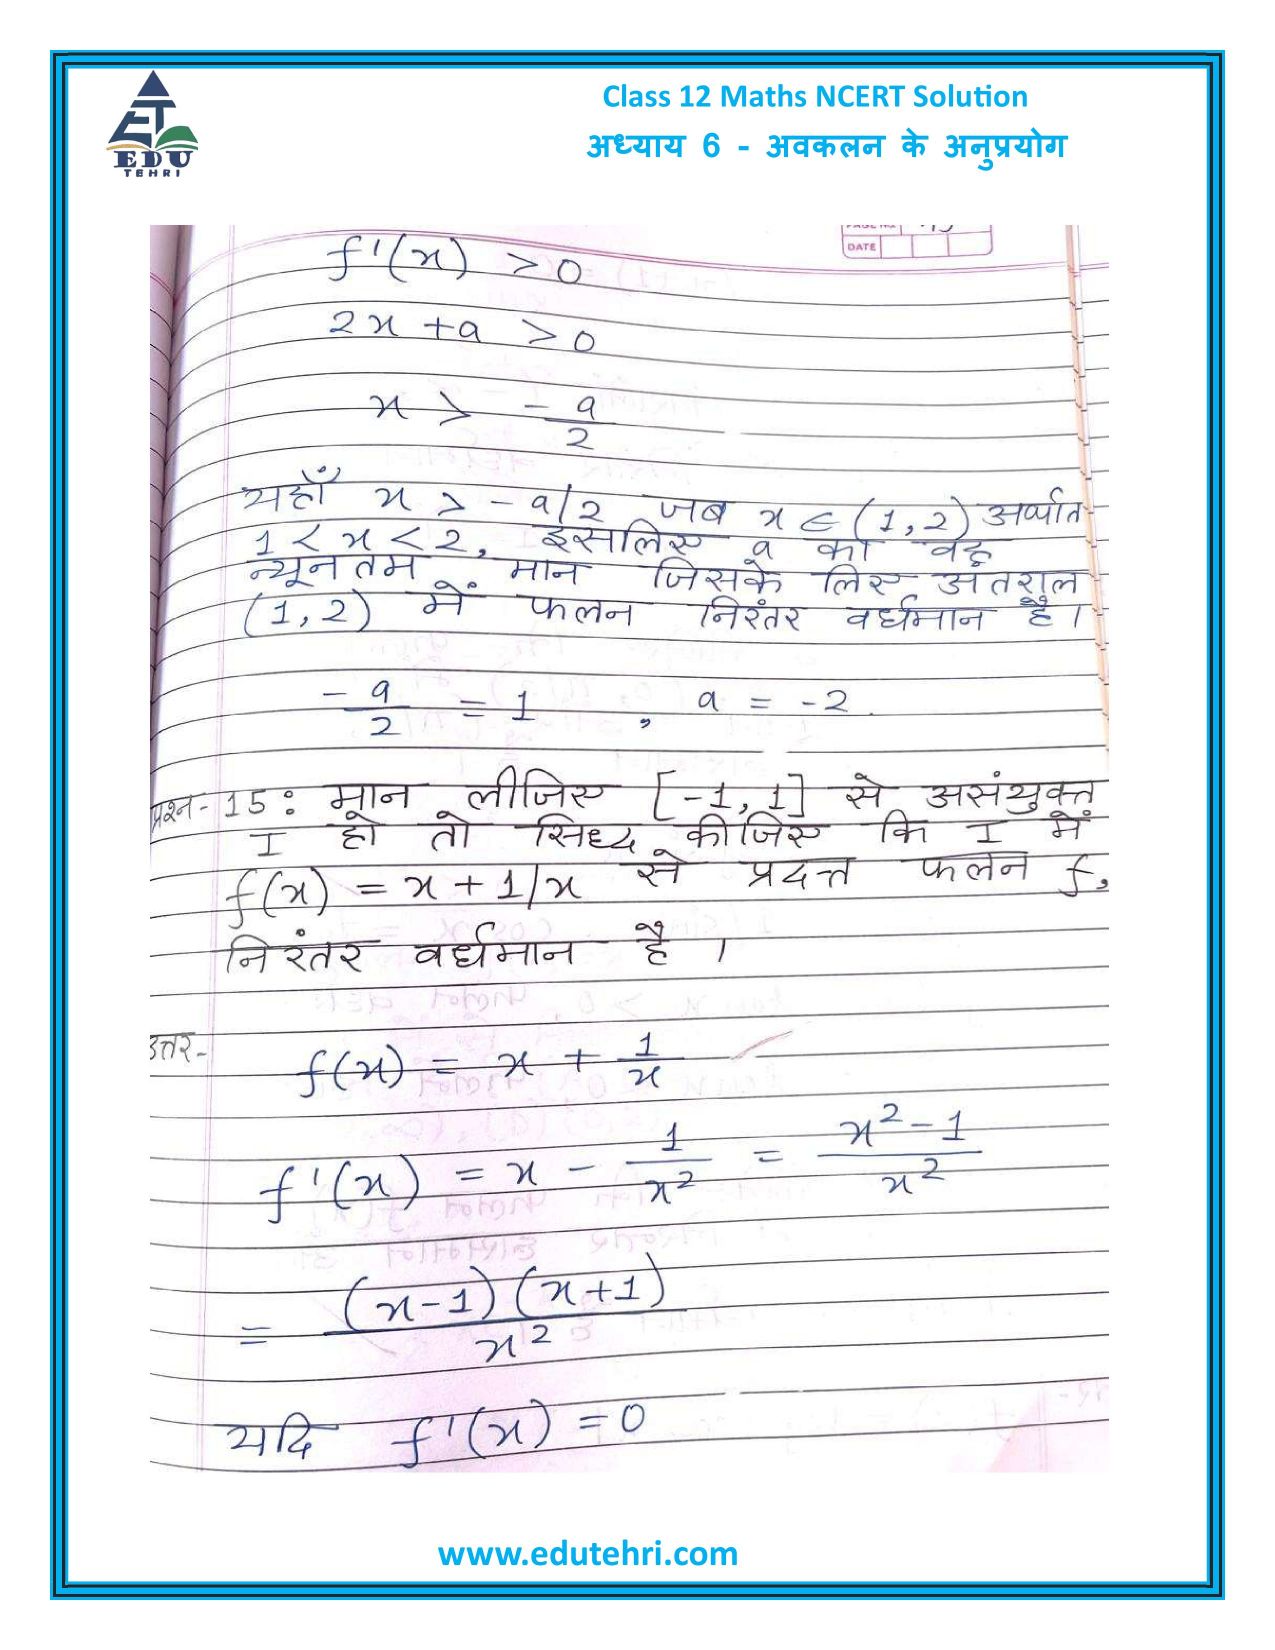 ET
EDU
TEHRI
Class 12 Maths NCERT Solution
अध्याय 6 - अवकलन के अनुप्रयोग
DATE
f'(x) > 0
2x + a > 0
x > -a/2
यहाँ x > -a/2 जब x ∈ (1,2) अर्थात
1 < x < 2, इसलिए a का वह
न्यूनतम मान जिसके लिए अंतराल
(1,2) में फलन निरंतर वर्धमान है।
-a/2 = 1 , a = -2
प्रश्न-15: मान लीजिए [-1, 1] से असंयुक्त
I हो तो सिध्द कीजिए कि I में
f(x) = x + 1/x से प्रदत्त फलन f,
निरंतर वर्धमान है ।
उत्तर- f(x) = x + 1/x
f'(x) = x - 1/x² = x²-1/x²
= (x-1)(x+1)/x²
यदि f'(x) = 0
www.edutehri.com